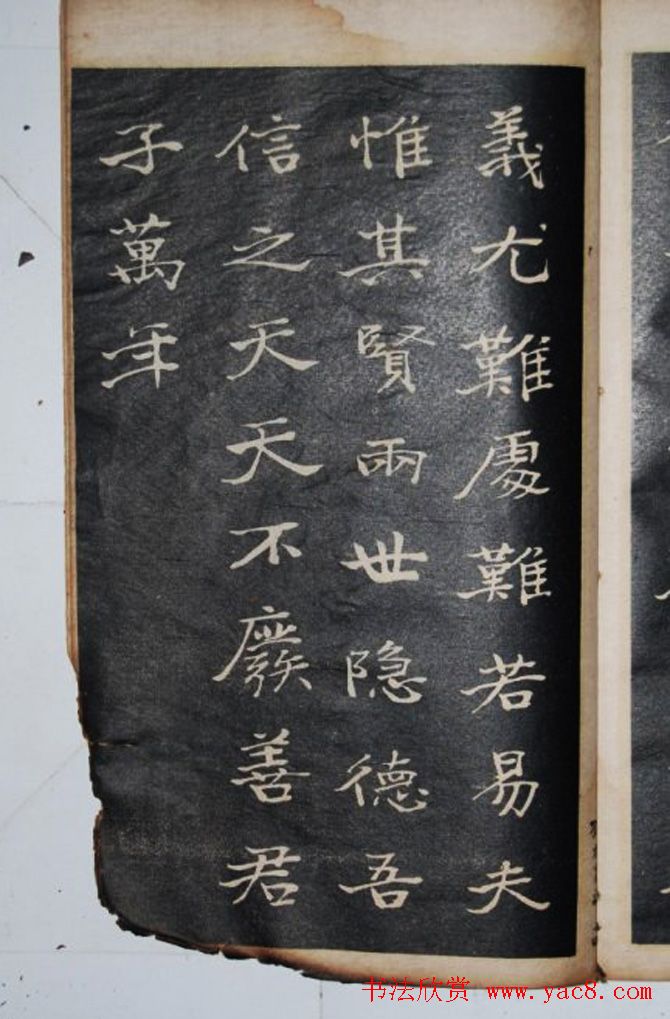 義尤難處難若易夫
惟其賢兩世隐德吾
信之天天不廢善君
子萬年
书法欣赏 www.yac8.com